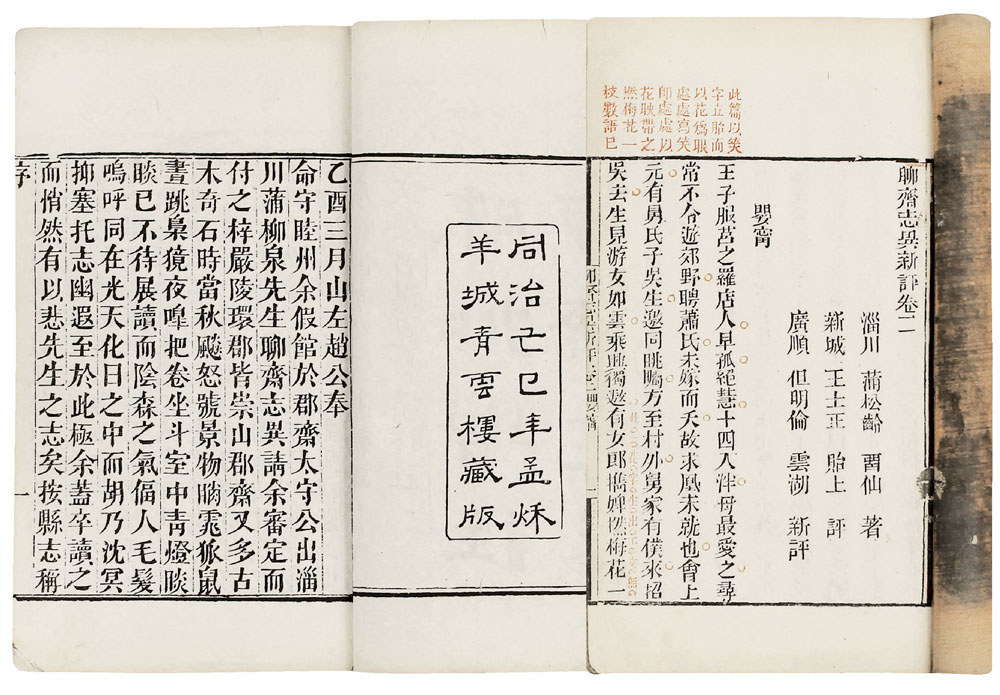 聊齋志異新評卷二
淄川 蒲松齡 畱仙 著
新城 王士正 貽上 評
廣順 但明倫 雲湖 新評
嬰甯
王子服莒之羅店人早孤絕慧十四入泮母最愛之尋
常不令遊郊野聘蕭氏未嫁而夭故求凰未就也會上
元有舅氏子吳生邀同眺矚方至村外舅家有僕來招
吳去生見游女如雲乘興獨遨有女郎攜婢撚梅花一
此篇以笑
字立胎而
以花爲眼
處處寫笑
即處處以
花映帶之
撚梅花一
枝數語已
同治己巳年孟秌
羊城青雲樓藏版
乙酉三月山左趙公奉
命守睦州余假館於郡齋太守公出淄
川蒲柳泉先生聊齋志異請余審定而
付之梓嚴陵環郡皆崇山郡齋又多古
木奇石時當秋飈怒號景物睄窕狐鼠
晝跳梟獍夜嘷把卷坐斗室中青燈睒
睒已不待展讀而陰森之氣偪人毛髮
嗚呼同在光天化日之中而胡乃沈冥
抑塞托志幽遐至於此極余蓋卒讀之
而悄然有以悲先生之志矣按縣志稱
序
一